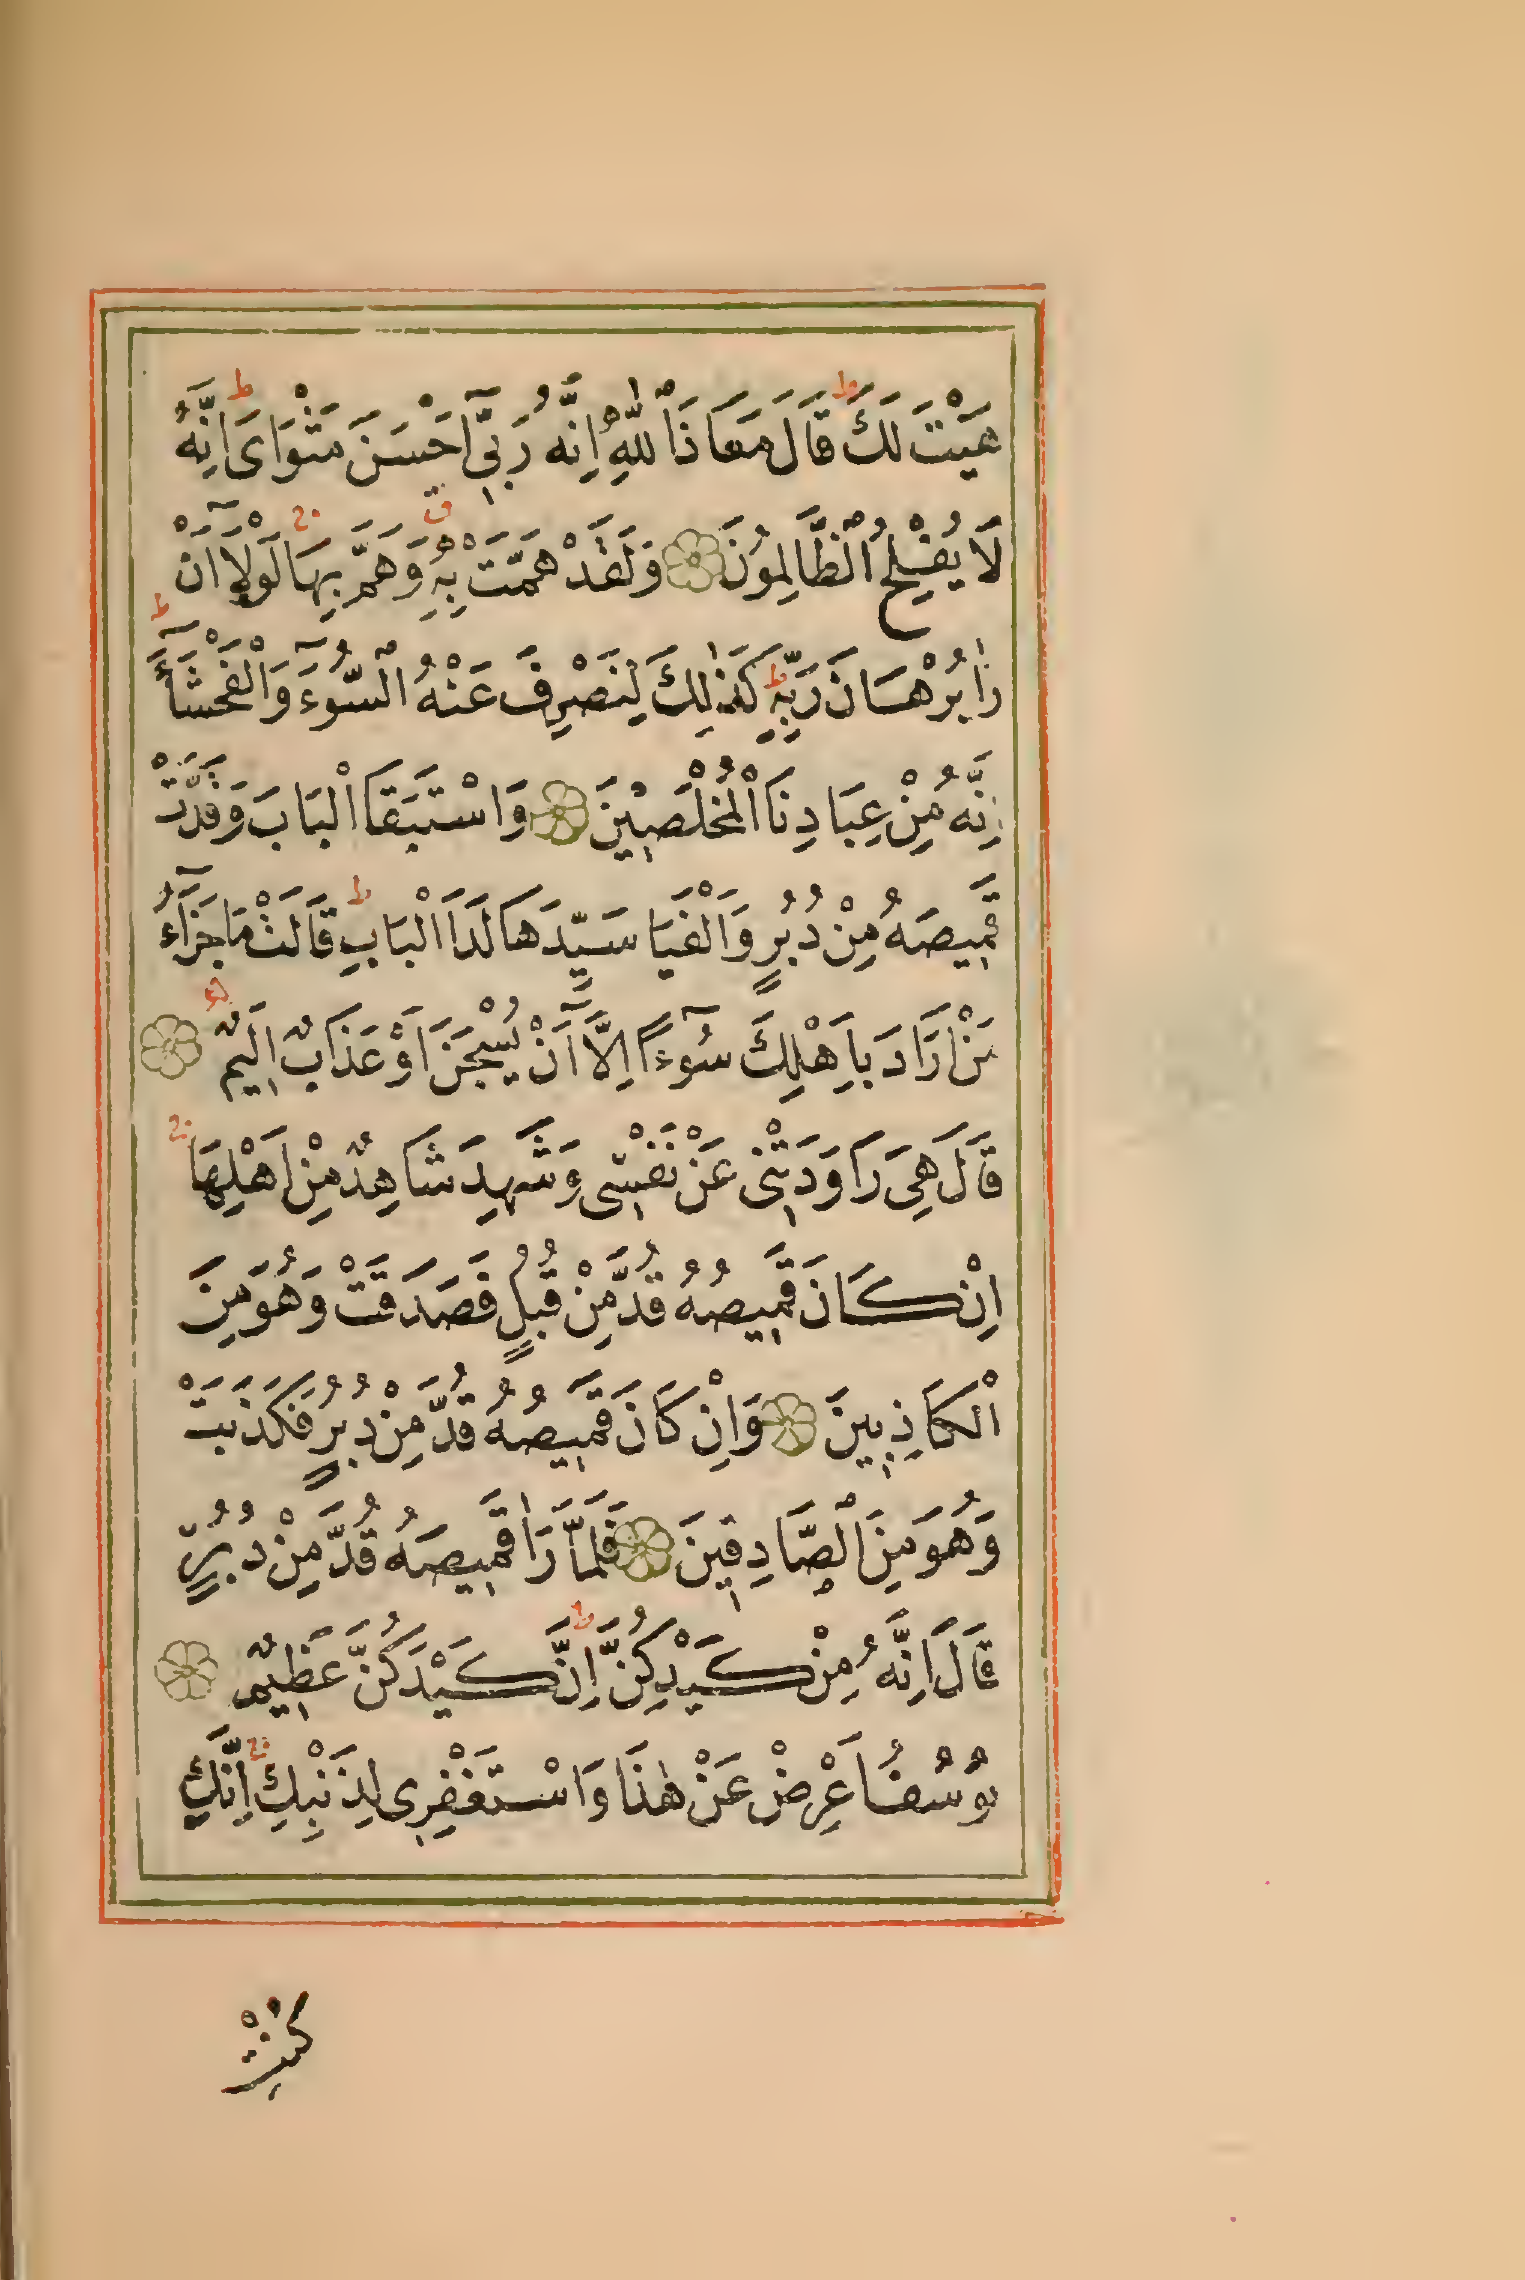 هَيْتَ لَكَ ط قَالَ مَعَاذَ اللّٰهِ اِنَّهُ رَبِّىٓ اَحْسَنَ مَثْوَاىَ ط اِنَّهُ
لَا يُفْلِحُ الْظَّالِمُونَ وَلَقَدْ هَمَّتْ بِهِ ق وَهَمَّ بِهَا ج لَوْلَآ اَنْ
رَاٰ بُرْهَانَ رَبِّهِ ط كَذٰلِكَ لِنَصْرِفَ عَنْهُ الْسُّوٓءَ وَالْفَحْشَآءَ ط
اِنَّهُ مِنْ عِبَادِنَا الْمُخْلَصِيْنَ وَاسْتَبَقَا الْبَابَ وَقَدَّتْ
قَمِيصَهُ مِنْ دُبُرٍ وَاَلْفَيَا سَيِّدَهَا لَدَا الْبَابِ ط قَالَتْ مَا جَزَآءُ
مَنْ اَرَادَ بِاَهْلِكَ سُوٓءًا اِلَّآ اَنْ يُسْجَنَ اَوْ عَذَابٌ اَلِيمٌ
قَالَ هِىَ رَاوَدَتْنِى عَنْ نَفْسِى وَشَهِدَ شَاهِدٌ مِنْ اَهْلِهَا ج
اِنْ كَانَ قَمِيصُهُ قُدَّ مِنْ قُبُلٍ فَصَدَقَتْ وَهُوَ مِنَ
الْكَاذِبِينَ وَاِنْ كَانَ قَمِيصُهُ قُدَّ مِنْ دُبُرٍ فَكَذَبَتْ
وَهُوَ مِنَ الْصَّادِقِينَ فَلَمَّا رَاٰ قَمِيصَهُ قُدَّ مِنْ دُبُرٍ
قَالَ اِنَّهُ مِنْ كَيْدِكُنَّ ط اِنَّ كَيْدَكُنَّ عَظِيمٌ
يُوسُفُ اَعْرِضْ عَنْ هٰذَا وَاسْتَغْفِرِى لِذَنْبِكِ ج اِنَّكِ
كُنْتِ